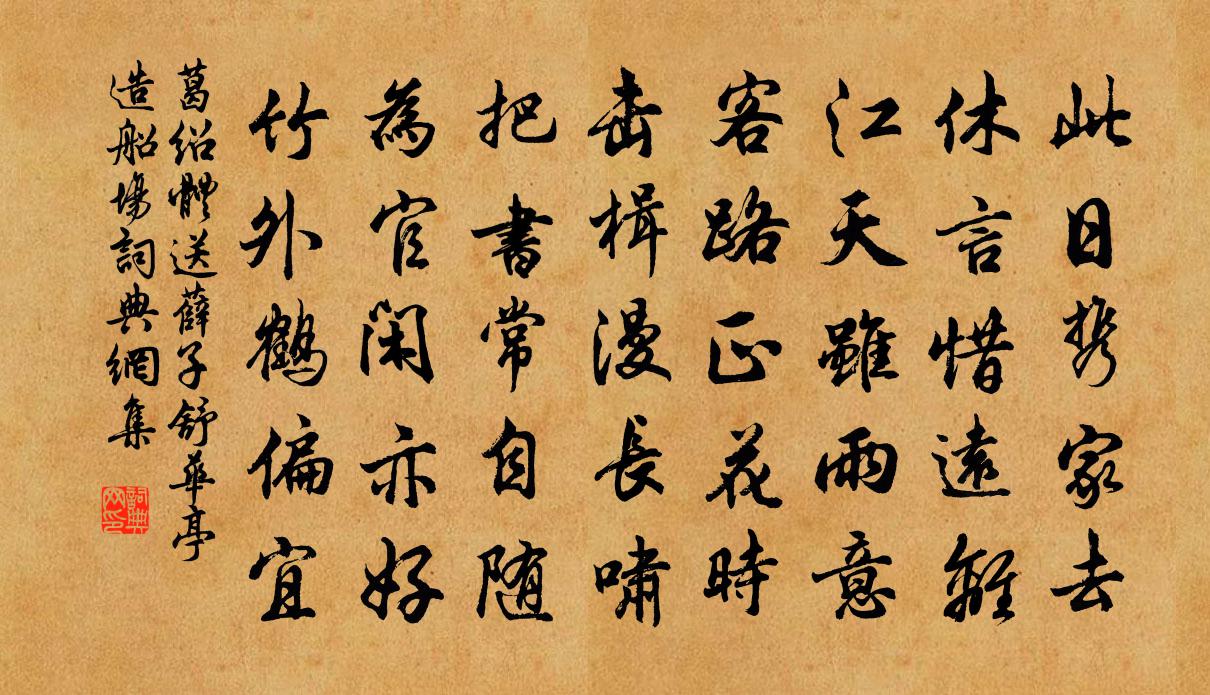 此日携家去
休言惜遠離
江天雖雨意
客路正花時
击楫漫長嘯
把書常自随
為官閑亦好
竹外鶴偏宜
葛紹體送薛子舒華亭
造船場詞典網集
詞典网印